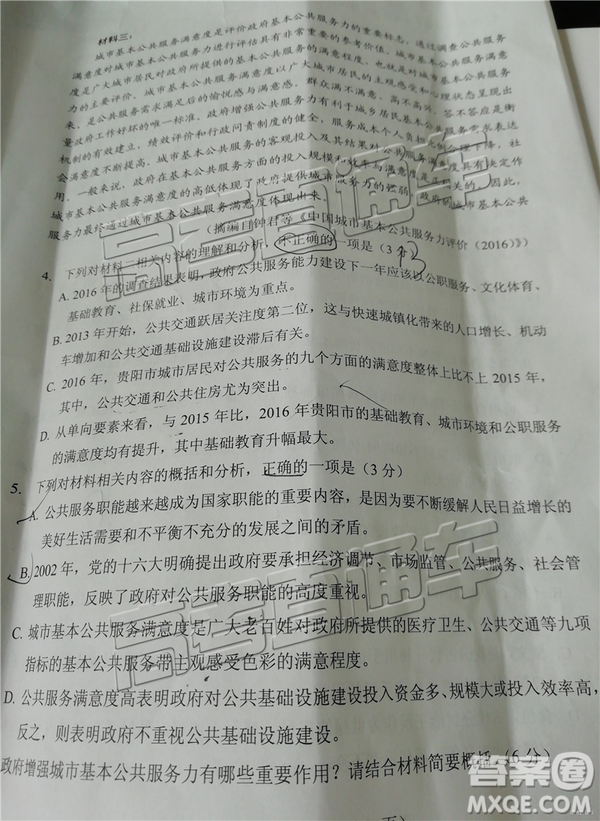 材料三：
城市基本公共服务满意度是评价政府基本公共服务力的重要标志，通过调查公共服务
满意度对城市基本公共服务力进行评估具有非常重要的参考价值。城市基本公共服务满意
度是广大城市居民对政府所提供的基本公共服务的满意程度，也就是对城市基本公共服务
力的主要评价。城市基本公共服务满意度以广大城市居民的主观感受和心理状态呈现出
来，是公共服务需求满足后的愉悦感与满意感。群众满不满意、高不高兴、答不答应是衡
量政府工作好坏的唯一标准。政府增强公共服务力有利于城乡居民基本公共服务需求表达
机制的有效建立、绩效评价和行政问责制度的健全、服务成本个人负担比例合理下降，社
会满意度不断提高。城市基本公共服务的客观投入及其结果对公共服务满意度具有决定作
用。一般来说，政府在基本公共服务方面的投入规模和效率与满意度是
城市基本公共服务满意度的高低体现了政府提供城市
务力最终通过城市基本公共服务满意度体现出来。
（摘编自钟君等《中国城市基本公共服务力评价（2016）》）
4. 下列对材料二相关内容的理解和分析，不正确的一项是（3
A. 2016 年的调查结果表明，政府公共服务能力建设下一年应该以公职服务、文化体育、
基础教育、社保就业、城市环境为重点。
B. 2013 年开始，公共交通跃居关注度第二位，这与快速城镇化带来的人口增长、机动
车增加和公共交通基础设施建设滞后有关。
C. 2016 年，贵阳市城市居民对公共服务的九个方面的满意度整体上比不上 2015 年，
其中，公共交通和公共住房尤为突出。
D. 从单向要素来看，与 2015 年比，2016 年贵阳市的基础教育、城市环境和公职服务
的满意度均有提升，其中基础教育升幅最大。
5. 下列对材料相关内容的概括和分析，正确的一项是（3 分）
A. 公共服务职能越来越成为国家职能的重要内容，是因为要不断缓解人民日益增长的
美好生活需要和不平衡不充分的发展之间的矛盾。
B. 2002 年，党的十六大明确提出政府要承担经济调节、市场监管、公共服务、社会管
理职能，反映了政府对公共服务职能的高度重视。
C. 城市基本公共服务满意度是广大老百姓对政府所提供的医疗卫生、公共交通等九项
指标的基本公共服务带主观感受色彩的满意程度。
D. 公共服务满意度高表明政府对公共基础设施建设投入资金多、规模大或投入效率高，
反之，则表明政府不重视公共基础设施建设。
政府增强城市基本公共服务力有哪些重要作用？请结合材料简要概括（6 分）
高考直通车
高考直通车
答案圈
MXQE.COM